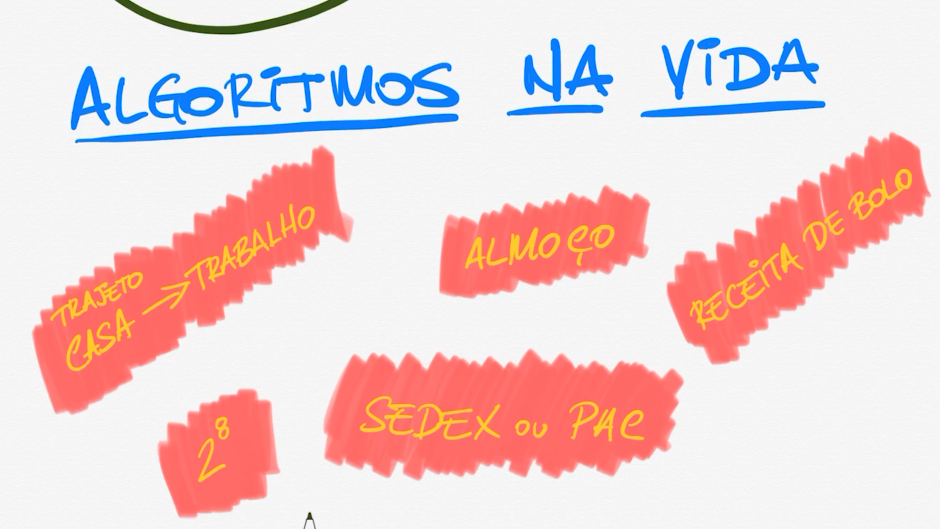 ALGORITMOS NA VIDA
TRAJETO
CASA → TRABALHO
ALMOÇO
RECEITA DE BOLO
2⁸
SEDEX OU PAC